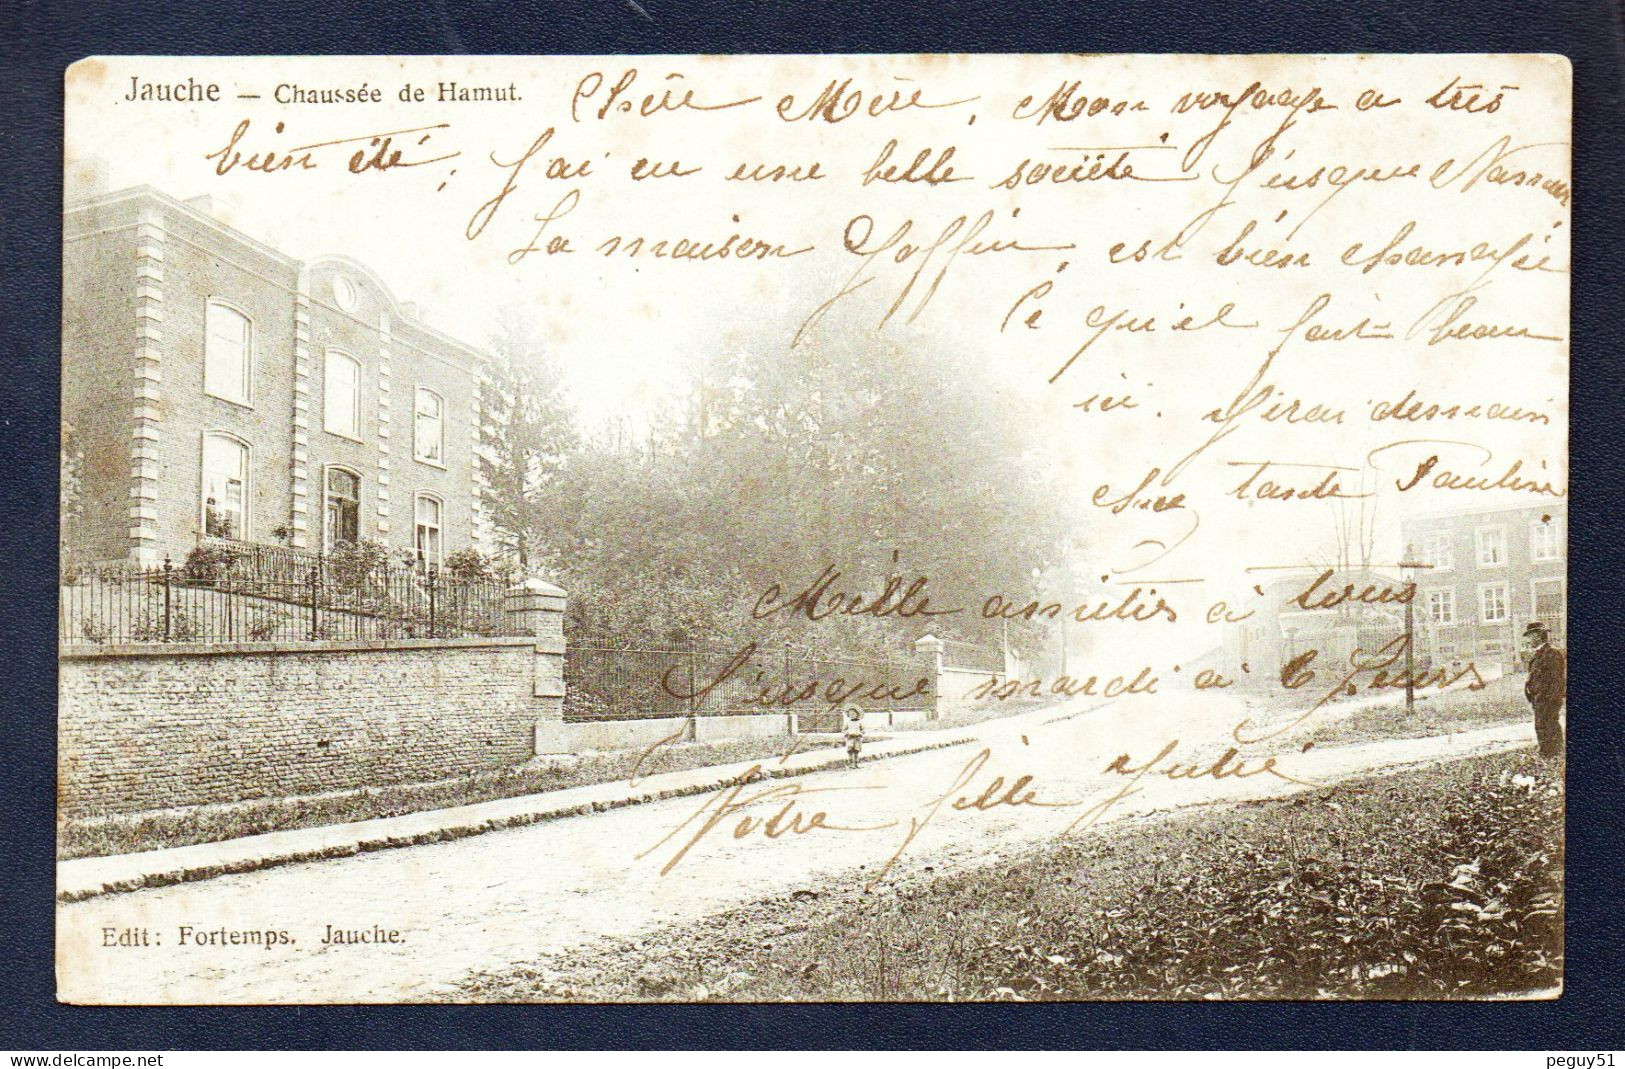 Jauche — Chaussée de Hamut.
Chère Mère, Mon voyage a très
bien été, J'ai eu une belle société Jusque Namur
La maison Goffin, est bien changée
Ce qu'il fait beau
ici. J'irai demain
chez tante Pauline
Mille amitiés à tous
Jusque mardi à 6 heures
Votre fille
Edit: Fortemps. Jauche.
peguy51